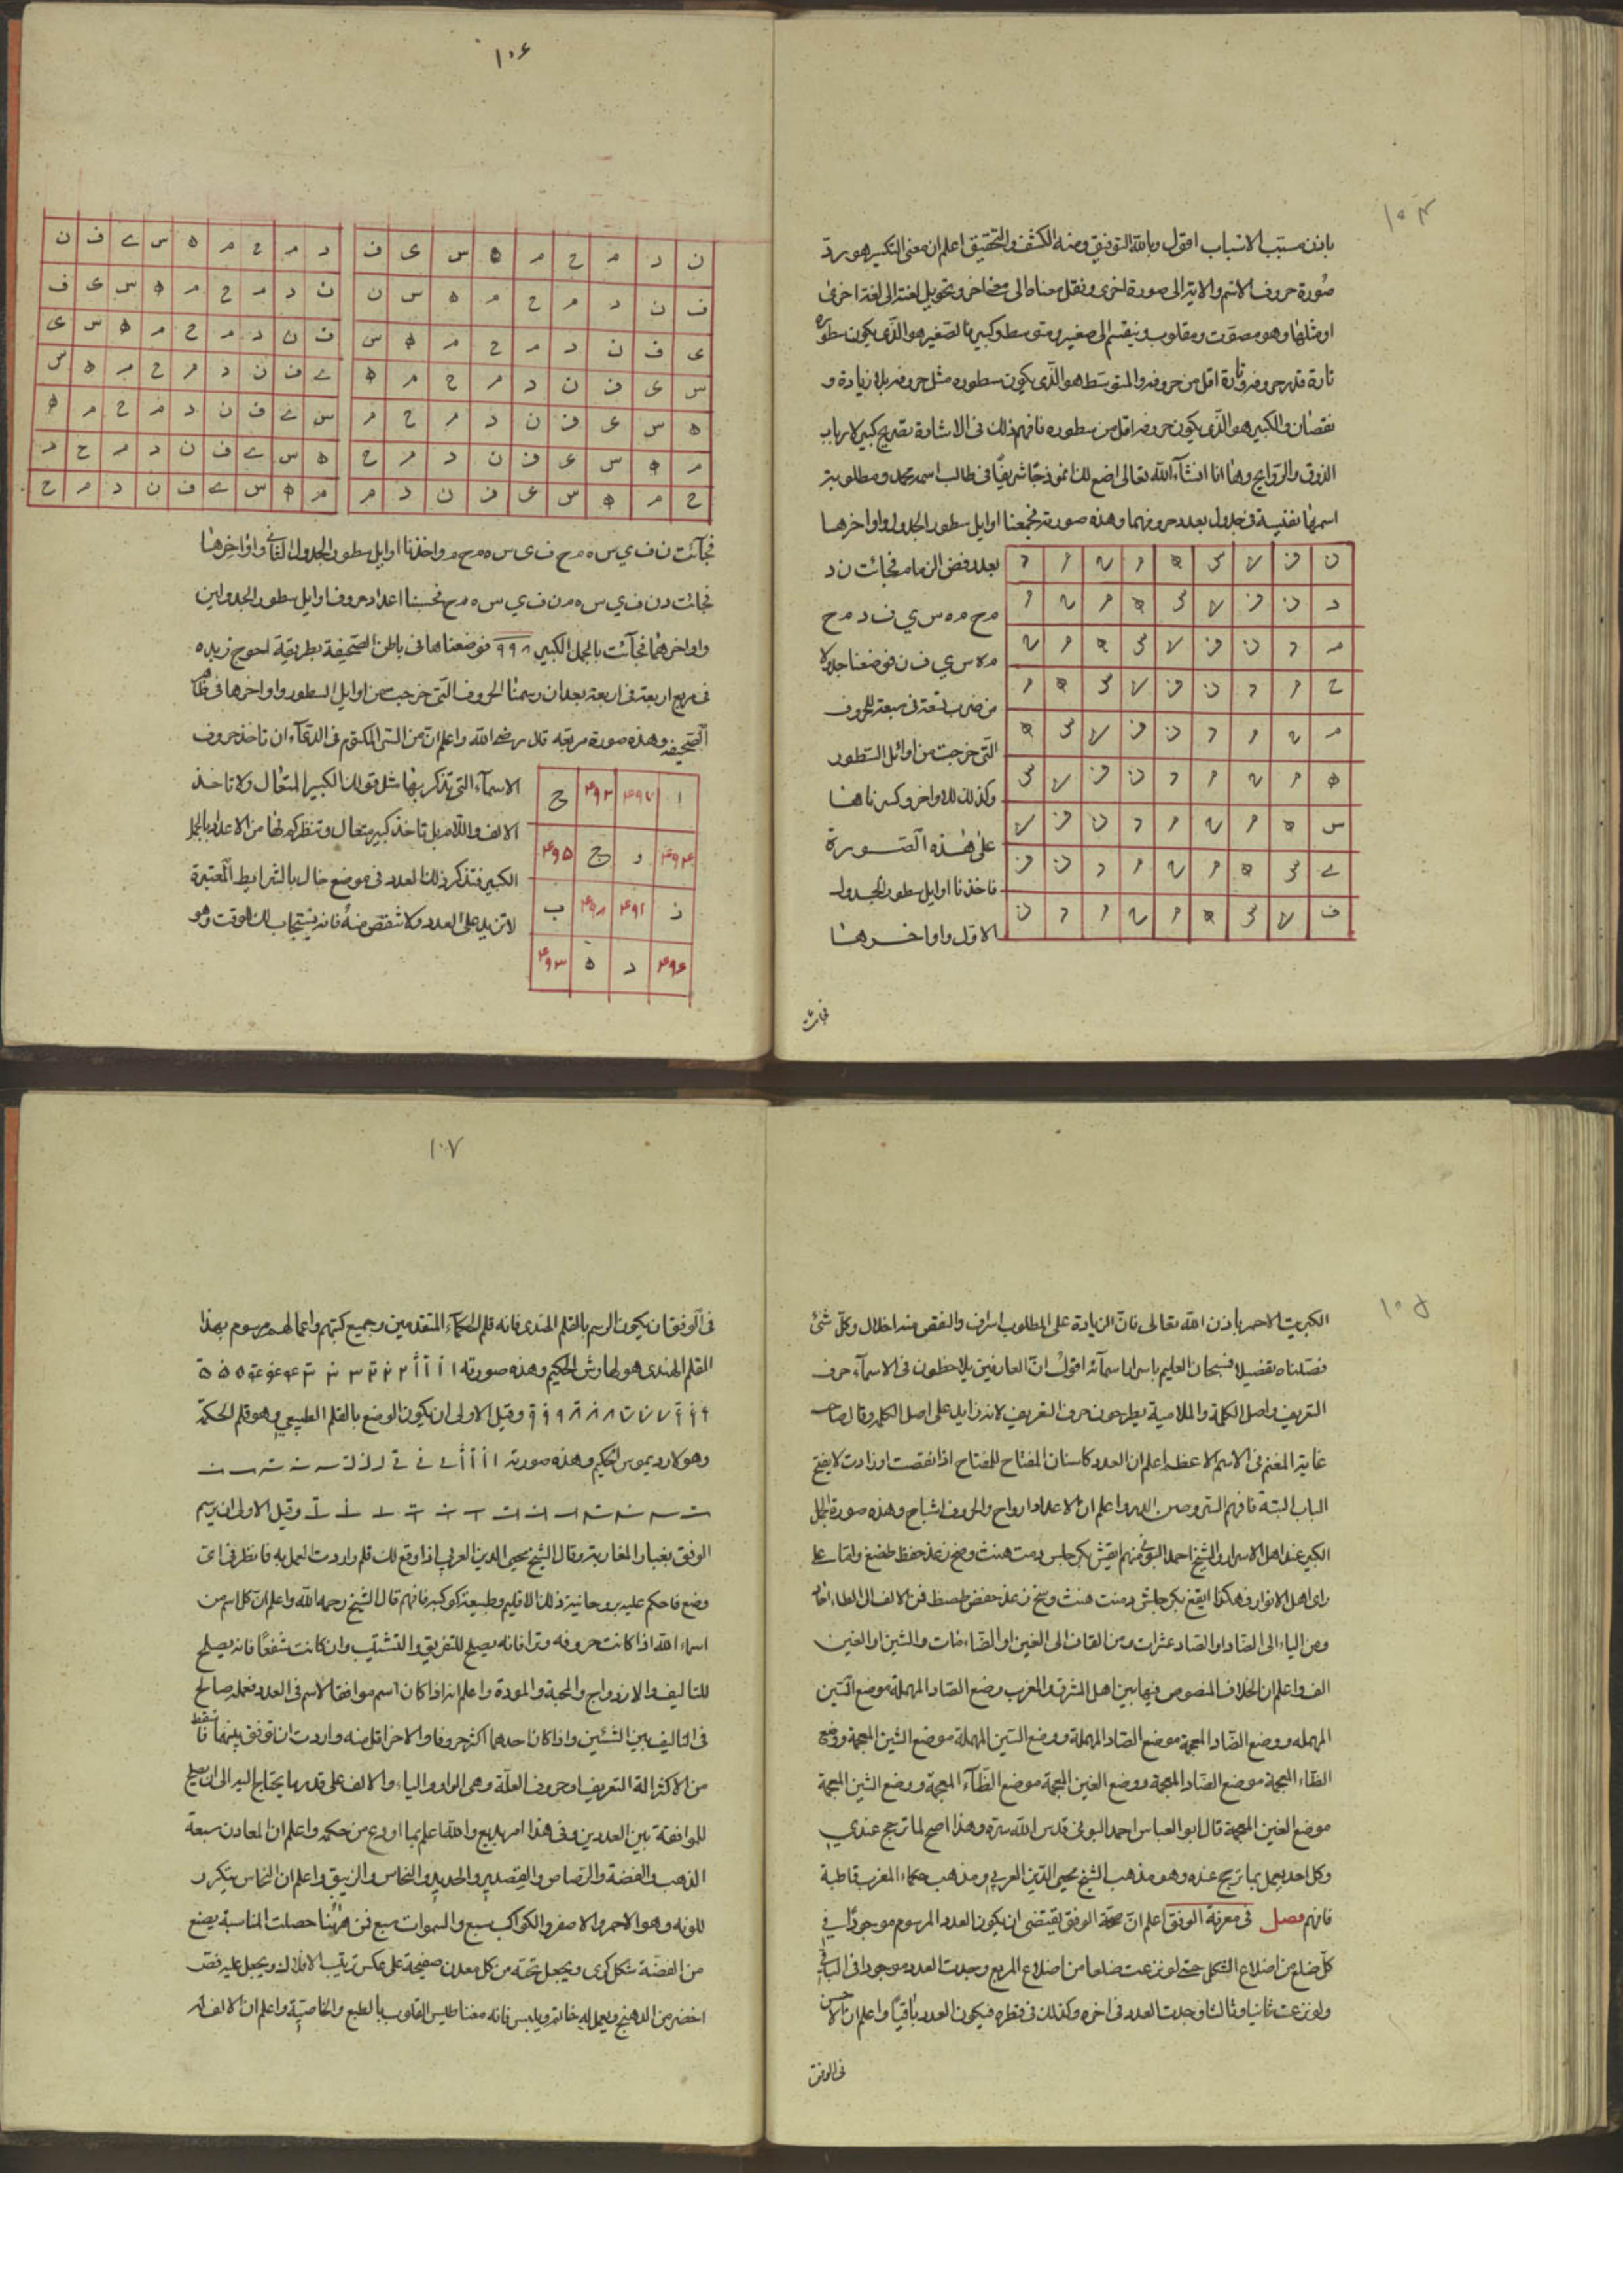 ١٠٤
باذن مسبب الاسباب اقول وبالله التوفيق ومنه الكشف والتحقيق اعلم ان معنى التكسير هو ردّ
صورة حروف الاسم والاية الى صورة اخرى ونقل معناه الى معنى اخر وتحويل لغة الى لغة اخرى
او مثلها وهو مصوّت ومقلوب وينقسم الى صغير ومتوسط وكبير فالصغير هو الذى يكون سطوره
تارة قدر حروفه وتارة اقل من حروفه والمتوسط هو الذى يكون سطوره مثل حروفه بلا زيادة و
نقصان والكبير هو الذى يكون حروفه اقل من سطوره فافهم ذلك فى الاشارة تصريح كبير لارباب
الذوق والروايح وها انا انشآء الله تعالى اضع لك انموذجا شريفا فى طالب اسمه محمد ومطلوبته
اسمها نفيسة فى جدول بعدد حروفهما وهذه صورته فجمعنا اوايل سطور الجدول واواخرها
بعد رفض الزمام فجائت ن د
م ح م ه س ي ف د م ح
م ه س ي ف ن فوضعنا جدولا
من ضرب تسعة فى سبعة للحروف
التى خرجت من اوائل السطور
وكذلك للاواخر وكسرناها
على هذه الصورة
فاخذنا اوايل سطور الجدول
الاول واواخرها
ن ف ي س ه م ح م د
د ن ف ي س ه م ح م
م د ن ف ي س ه م ح
ح م د ن ف ي س ه م
م ح م د ن ف ي س ه
ه م ح م د ن ف ي س
س ه م ح م د ن ف ي
ي س ه م ح م د ن ف
ف ي س ه م ح م د ن
فجائت
١٠۶
ن د م ح م ه س ى ف
ف ن د م ح م ه س ن
ى ف ن د م ح م ه س
س ى ف ن د م ح م ه
ه س ى ف ن د م ح م
م ه س ى ف ن د م ح
ح م ه س ى ف ن د م
د م ح م ه س ے ف ن
ن د م ح م ه س ى ف
ف ن د م ح م ه س ى
ے ف ن د م ح م ه س
س ے ف ن د م ح م ه
ه س ے ف ن د م ح م
م ه س ے ف ن د م ح
فجآئت ن ف ي س ه م ح ف ى س ه م ح م واخذنا اوايل سطور الجدول الثانى واواخرها
فجائت د ن ف ي س ه م ن ف ي س ه م ح فحسبنا اعداد حروف اوايل سطور الجدولين
واواخرهما فجآئت بالجمل الكبير ٩٩٨ فوضعناها فى باطن الصحيفة بطريقة احوج زبده
فى مربع اربعة فى اربعة بعد ان رسمنا الحروف التى خرجت من اوايل السطور واواخرها فى ظاهر
الصحيفة وهذه صورة مربعه قدر رضى الله واعلم ان من السر المكتوم فى الدعآء ان تاخذ حروف
الاسمآء التى تذكر بها مثل قولك الكبير المتعال ولا تاخذ
الالف واللام بل تاخذ كبير متعال وتنظركم لها من الاعداد بالجمل
الكبير فتذكر ذلك العدد فى موضع خال بالشرايط المعتبرة
لا تزيد على العدد ولا تنقص منه فانه يستجاب لك الوقت وهو
ا ۴٩٧ ۴٩٢ ح
۴٩۴ و ج ۴٩۵
ز ۴٩١ ۴٩٨ ب
۴٩۶ د ه ۴٩٣
١٠۵
الكبريت الاحمر باذن الله تعالى فان الزيادة على المطلوب اسراف والنقص منه اخلال وكل شئ
فصلناه تفصيلا فسبحان العليم باسرار اسمائه اقول ان العارفين يلاحظون فى الاسماء حرف
التعريف واصل الكلمة والملامية يطرحون حرف التعريف لانه زايد على اصل الكلمة وقال صاحب
غاية المغنم فى الاسم الاعظم اعلم ان العدد كاسنان المفتاح للمفتاح اذا نقصت او زادت لا يفتح
الباب البتة فافهم السر وصن الدر واعلم ان الاعداد ارواح والحروف اشباح وهذه صورة الجمل
الكبير عند اهل الاسرار والشيخ احمد البوني منهم ايقش بكر جلس دمت هنث وصخ زعذ حفظ طضغ واما على
راى اهل الانوار فهكذا ايقغ بكر جلش دمت هنث وسخ زعذ حفض طصظ فمن الالف الى الطاء احاد
ومن الياء الى الضاد او الصاد عشرات ومن القاف الى الغين او الظاء مئات والشين او الغين
الف واعلم ان الخلاف المنصوص فيما بين اهل المشرق والمغرب وضع الصاد المهملة موضع السّين
المهمله ووضع الضاد المعجمة موضع الصاد المهملة ووضع السين المهملة موضع الشين المعجمة ووضع
الظاء المعجمة موضع الضاد المعجمة ووضع الغين المعجمة موضع الظآء المعجمة ووضع الشين المعجمة
موضع الغين المعجمة قال ابو العباس احمد البونى قدس الله سره وهذا اصح لما ترجح عندي
وكل احد يعمل بما ترجح عنده وهو مذهب الشيخ محيى الدين العربي ومذهب حكماء المغرب قاطبة
فافهم فصل فى معرفة الوفق اعلم ان صحة الوفق يقتضى ان يكون العدد المرسوم موجودًا في
كل ضلع من اضلاع الشكل حتى لو نزعت ضلعا من اضلاع المربع وجدت العدد موجودا فى الباقى
ولو نزعت ثانيا وثالثا وجدت العدد فى اخره وكذلك فى قطره فيكون العدد باقيًا واعلم ان الاحسن
فى الوفق
١٠٧
فى الوفق ان يكون الرسم بالقلم الهندى فانه قلم الحكمآء المتقدمين وجميع كتبهم واعمالهم مرسوم بهذا
القلم الهندى هو لهاوش الحكيم وهذه صورته
وقيل الاولى ان يكون الوضع بالقلم الطبيعي وهو قلم الحكمة
وهو لارديموس الحكيم وهذه صورته
وقيل الاولى ان يرسم
الوفق بغبار المغاربة وقال الشيخ محيى الدين العربي اذا وقع لك قلم واردت العمل به فانظر فى اى
وضع فاحكم عليه بروحانية ذلك الاقليم وطبيعة كوكبه فافهم قال الشيخ رحمه الله واعلم ان كل اسم من
اسماء الله اذا كانت حروفه وترا فانه يصلح للتفريق والتشتيت وان كانت شفعًا فانه يصلح
للتاليف والازدواج والمحبة والمودة واعلم انه اذا كان اسم موافقا لاسم فى العدد فعمله صالح
فى التاليف بين الشئين واذا كان احدهما اكثر حروفا والاخر اقل منه واردت ان توفق بينهما فاسقط
من الاكثر الة التعريف او حروف العلّة وهى الواو والياء والالف على قدر ما يحتاج اليه الى ان يصلح
للموافقة بين العددين وفى هذا امر بديع والله اعلم بما اودع من حكمه واعلم ان المعادن سبعة
الذهب والفضة والرصاص والقصدير والحديد والنحاس والزيبق واعلم ان النحاس يتكرر
للونه وهو الاحمر والاصفر والكواكب سبع والسموات سبع فمن هٰهُنا حصلت المناسبة يصنع
من الفضة شكل كرى ويجعل تحته من كل معدن صفيحة على عكس ترتيب الافلاك ويجعل عليه فص
اخضر من الدهنج ويعمله خاتم ويلبس فانه مغناطيس القلوب بالطبع والخاصية واعلم ان الالف له